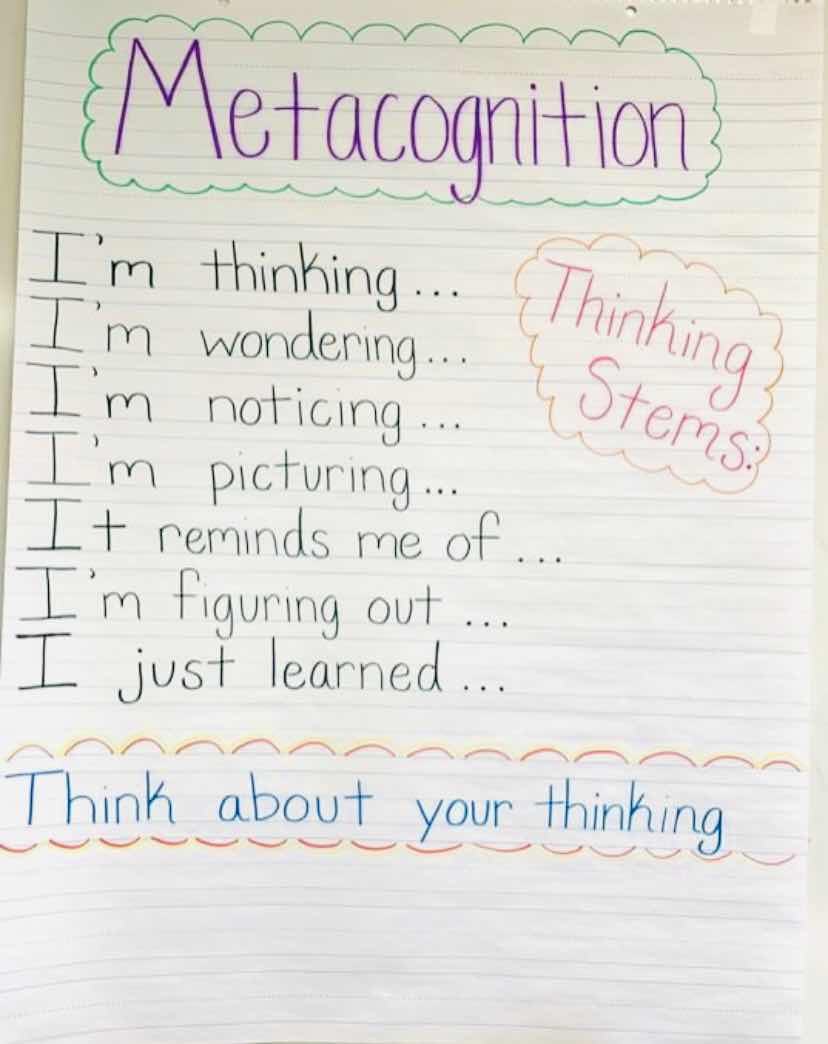 Metacognition
I'm thinking...
I'm wondering...
I'm noticing...
I'm picturing...
It reminds me of...
I'm figuring out...
I just learned...
Thinking
Stems:
Think about your thinking